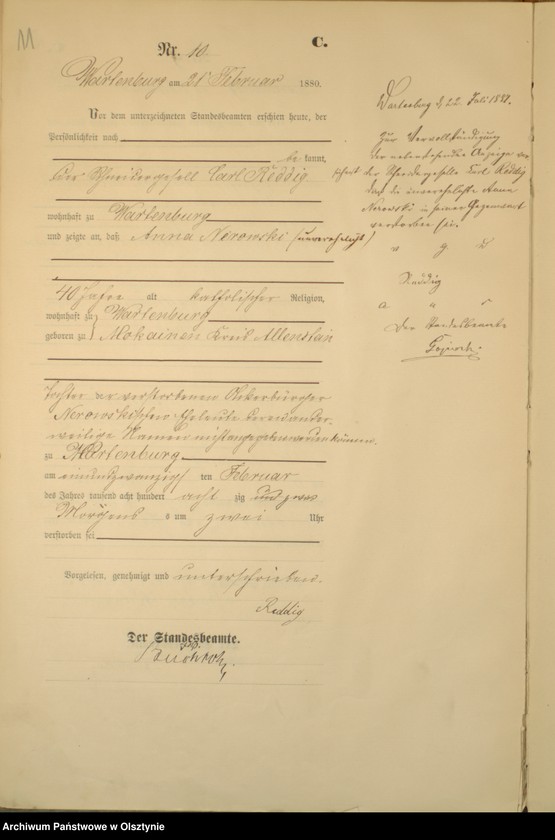 Nr. 10.
C.
Wartenburg am 21 Februar 1880.
Vor dem unterzeichneten Standesbeamten erschien heute, der
Persönlichkeit nach
bekannt,
der Schneidergesell Carl Reddig
wohnhaft zu Wartenburg
und zeigte an, daß Anna Nerowski (unverehelicht)
40 Jahre alt katholischer Religion,
wohnhaft zu Wartenburg
geboren zu Mokainen Kreis Allenstein
Tochter der verstorbenen Ackerbürger
Nerowskischen Eheleute deren ander-
weitige Namen nicht angegeben werden können.
zu Wartenburg
am einundzwanzigsten Februar
des Jahres tausend acht hundert achtzig und zwar
Morgens um zwei Uhr
verstorben sei
Vorgelesen, genehmigt und unterschrieben.
Reddig
Der Standesbeamte.
Wartenburg d 22. Juli
Zur Vervollständigung
der nebenstehenden Anzeige
der Schneidergeselle Carl Reddig
daß die unverehelichte Anna
Nerowski in seiner Gegenwart
verstorben sei.
v g
Reddig
a u s
Der Standesbeamte
Archiwum Państwowe w Olsztynie